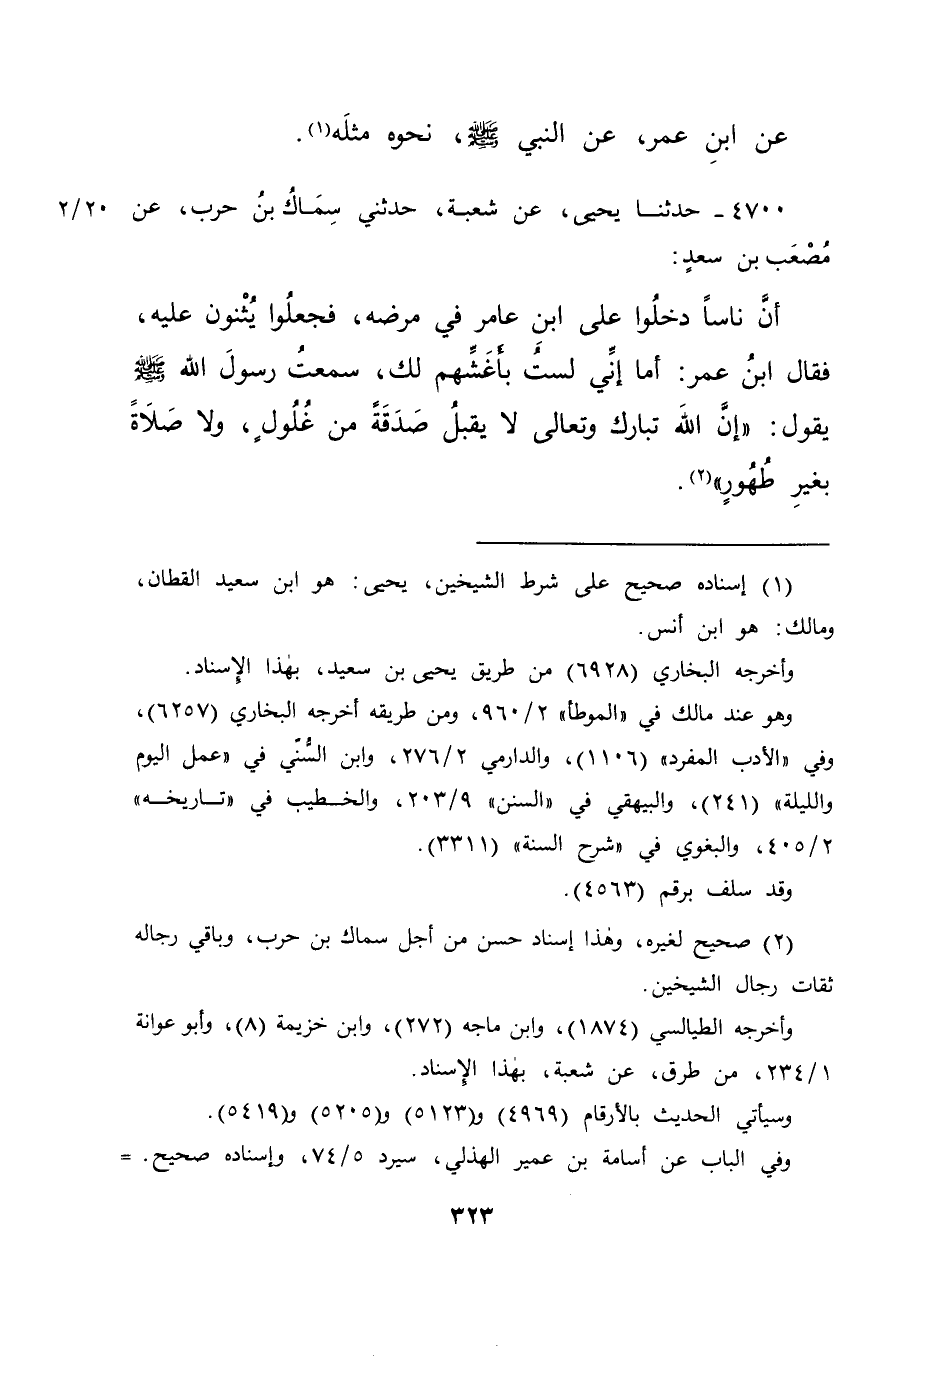 عن ابنِ عمر، عن النبي ﷺ، نحوه مثلَه(١).
٤٧٠٠ ـ حدثنا يحيى، عن شعبة، حدثني سِمَاكُ بنُ حرب، عن ٢/٢٠
مُصْعَب بن سعدٍ:
أنَّ ناساً دخلُوا على ابنِ عامر في مرضه، فجعلُوا يُثْنون عليه،
فقال ابنُ عمر: أما إنِّي لستُ بأَغَشِّهم لك، سمعتُ رسولَ الله ﷺ
يقول: «إنَّ اللهَ تبارك وتعالى لا يقبلُ صَدَقَةً من غُلُولٍ، ولا صَلَاةً
بغيرِ طُهُورٍ»(٢).
(١) إسناده صحيح على شرط الشيخين، يحيى: هو ابن سعيد القطان،
ومالك: هو ابن أنس.
وأخرجه البخاري (٦٩٢٨) من طريق يحيى بن سعيد، بهٰذا الإِسناد.
وهو عند مالك في «الموطأ» ٩٦٠/٢، ومن طريقه أخرجه البخاري (٦٢٥٧)،
وفي «الأدب المفرد» (١١٠٦)، والدارمي ٢٧٦/٢، وابن السُّنّي في «عمل اليوم
والليلة» (٢٤١)، والبيهقي في «السنن» ٢٠٣/٩، والخطيب في «تاريخه»
٤٠٥/٢، والبغوي في «شرح السنة» (٣٣١١).
وقد سلف برقم (٤٥٦٣).
(٢) صحيح لغيره، وهٰذا إسناد حسن من أجل سماك بن حرب، وباقي رجاله
ثقات رجال الشيخين.
وأخرجه الطيالسي (١٨٧٤)، وابن ماجه (٢٧٢)، وابن خزيمة (٨)، وأبو عوانة
٢٣٤/١، من طرق، عن شعبة، بهٰذا الإِسناد.
وسيأتي الحديث بالأرقام (٤٩٦٩) و(٥١٢٣) و(٥٢٠٥) و(٥٤١٩).
وفي الباب عن أسامة بن عمير الهذلي، سيرد ٧٤/٥، وإسناده صحيح. =
٣٢٣